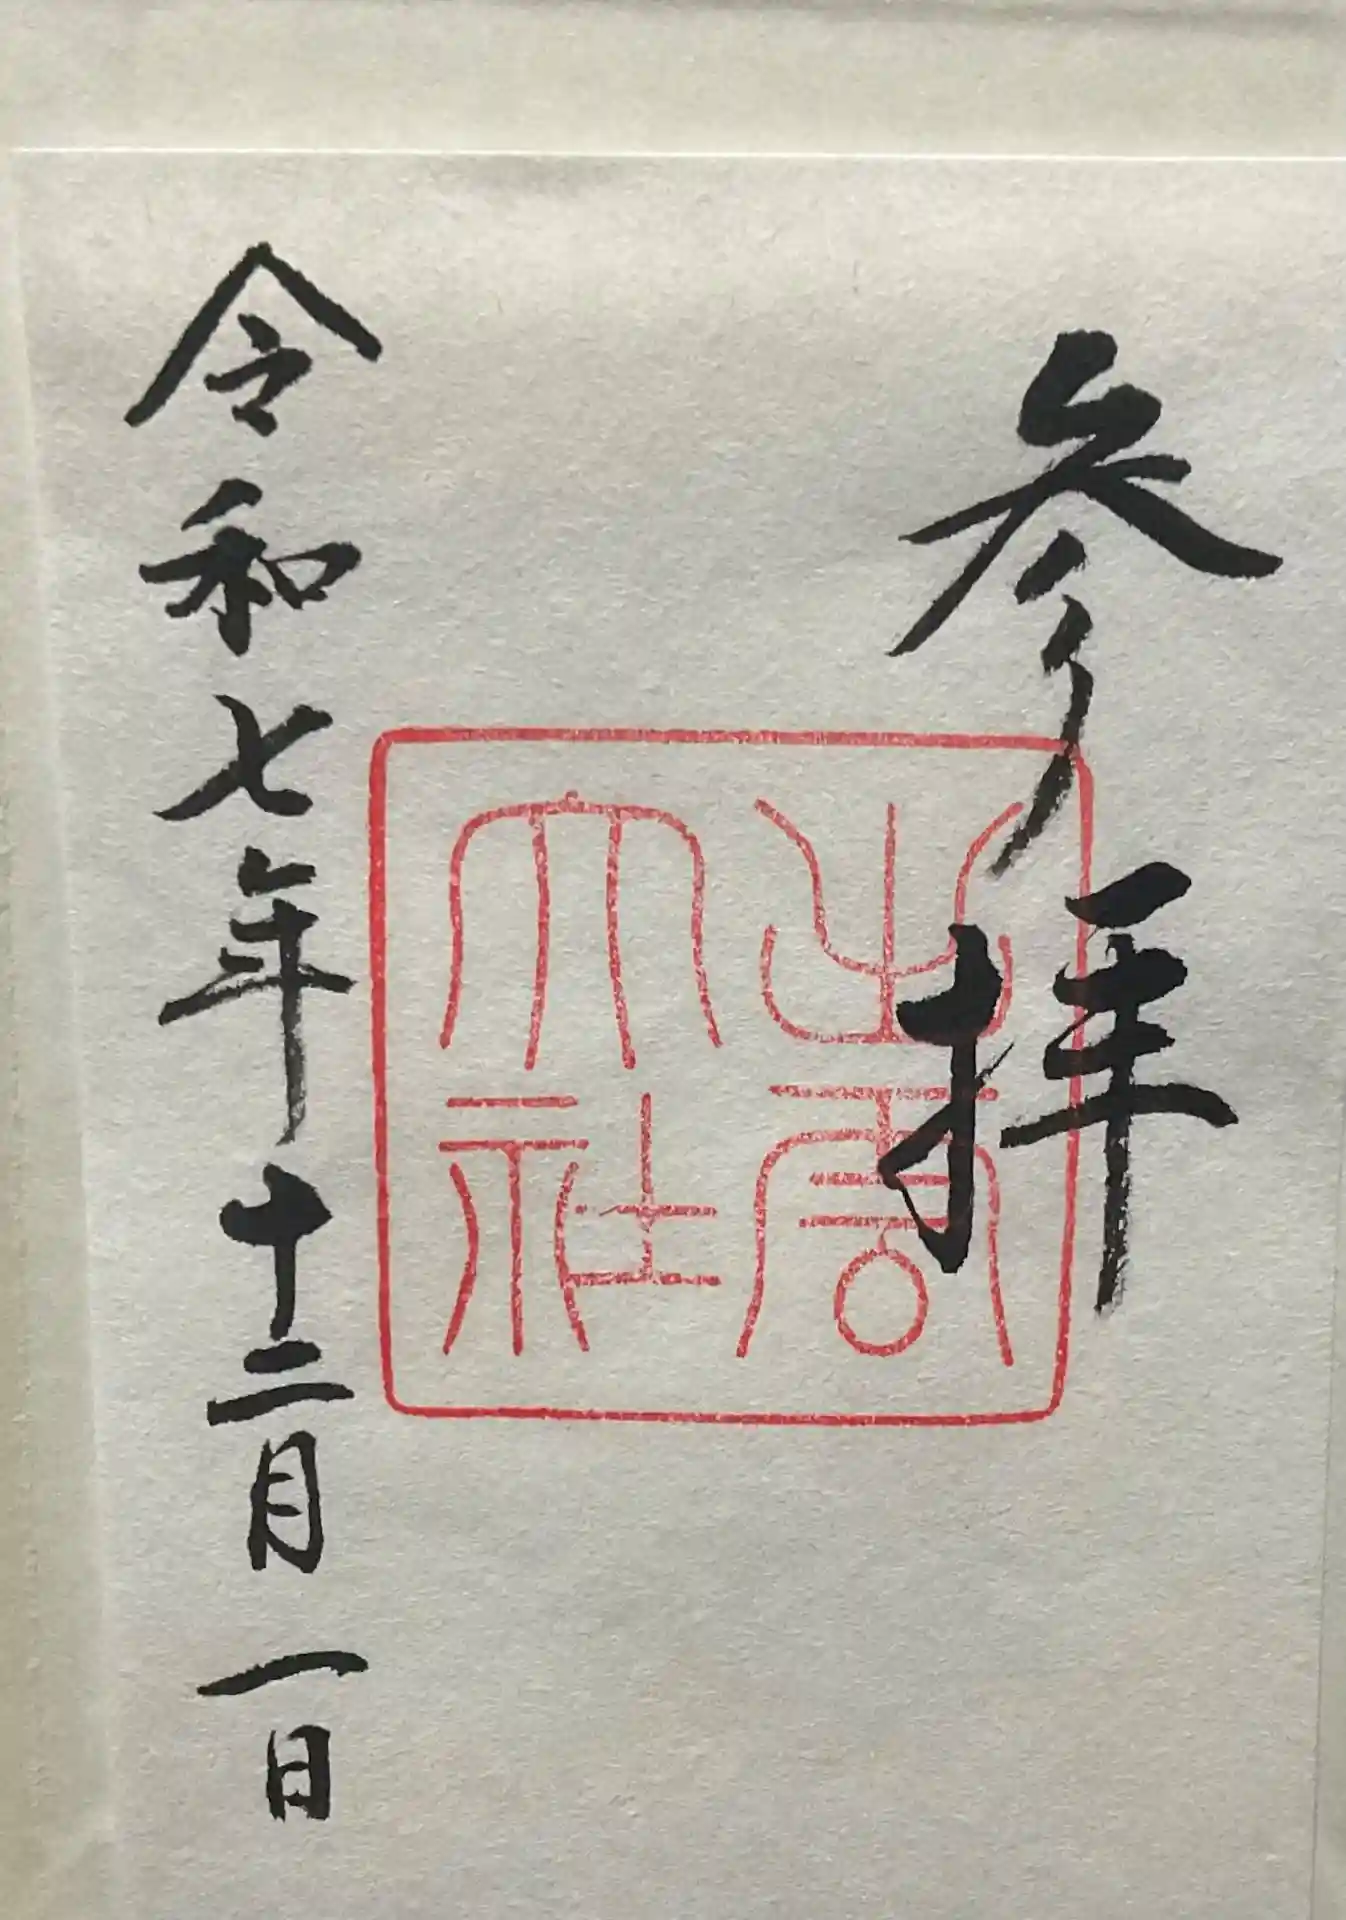 参拝
出雲大社
令和七年十二月一日